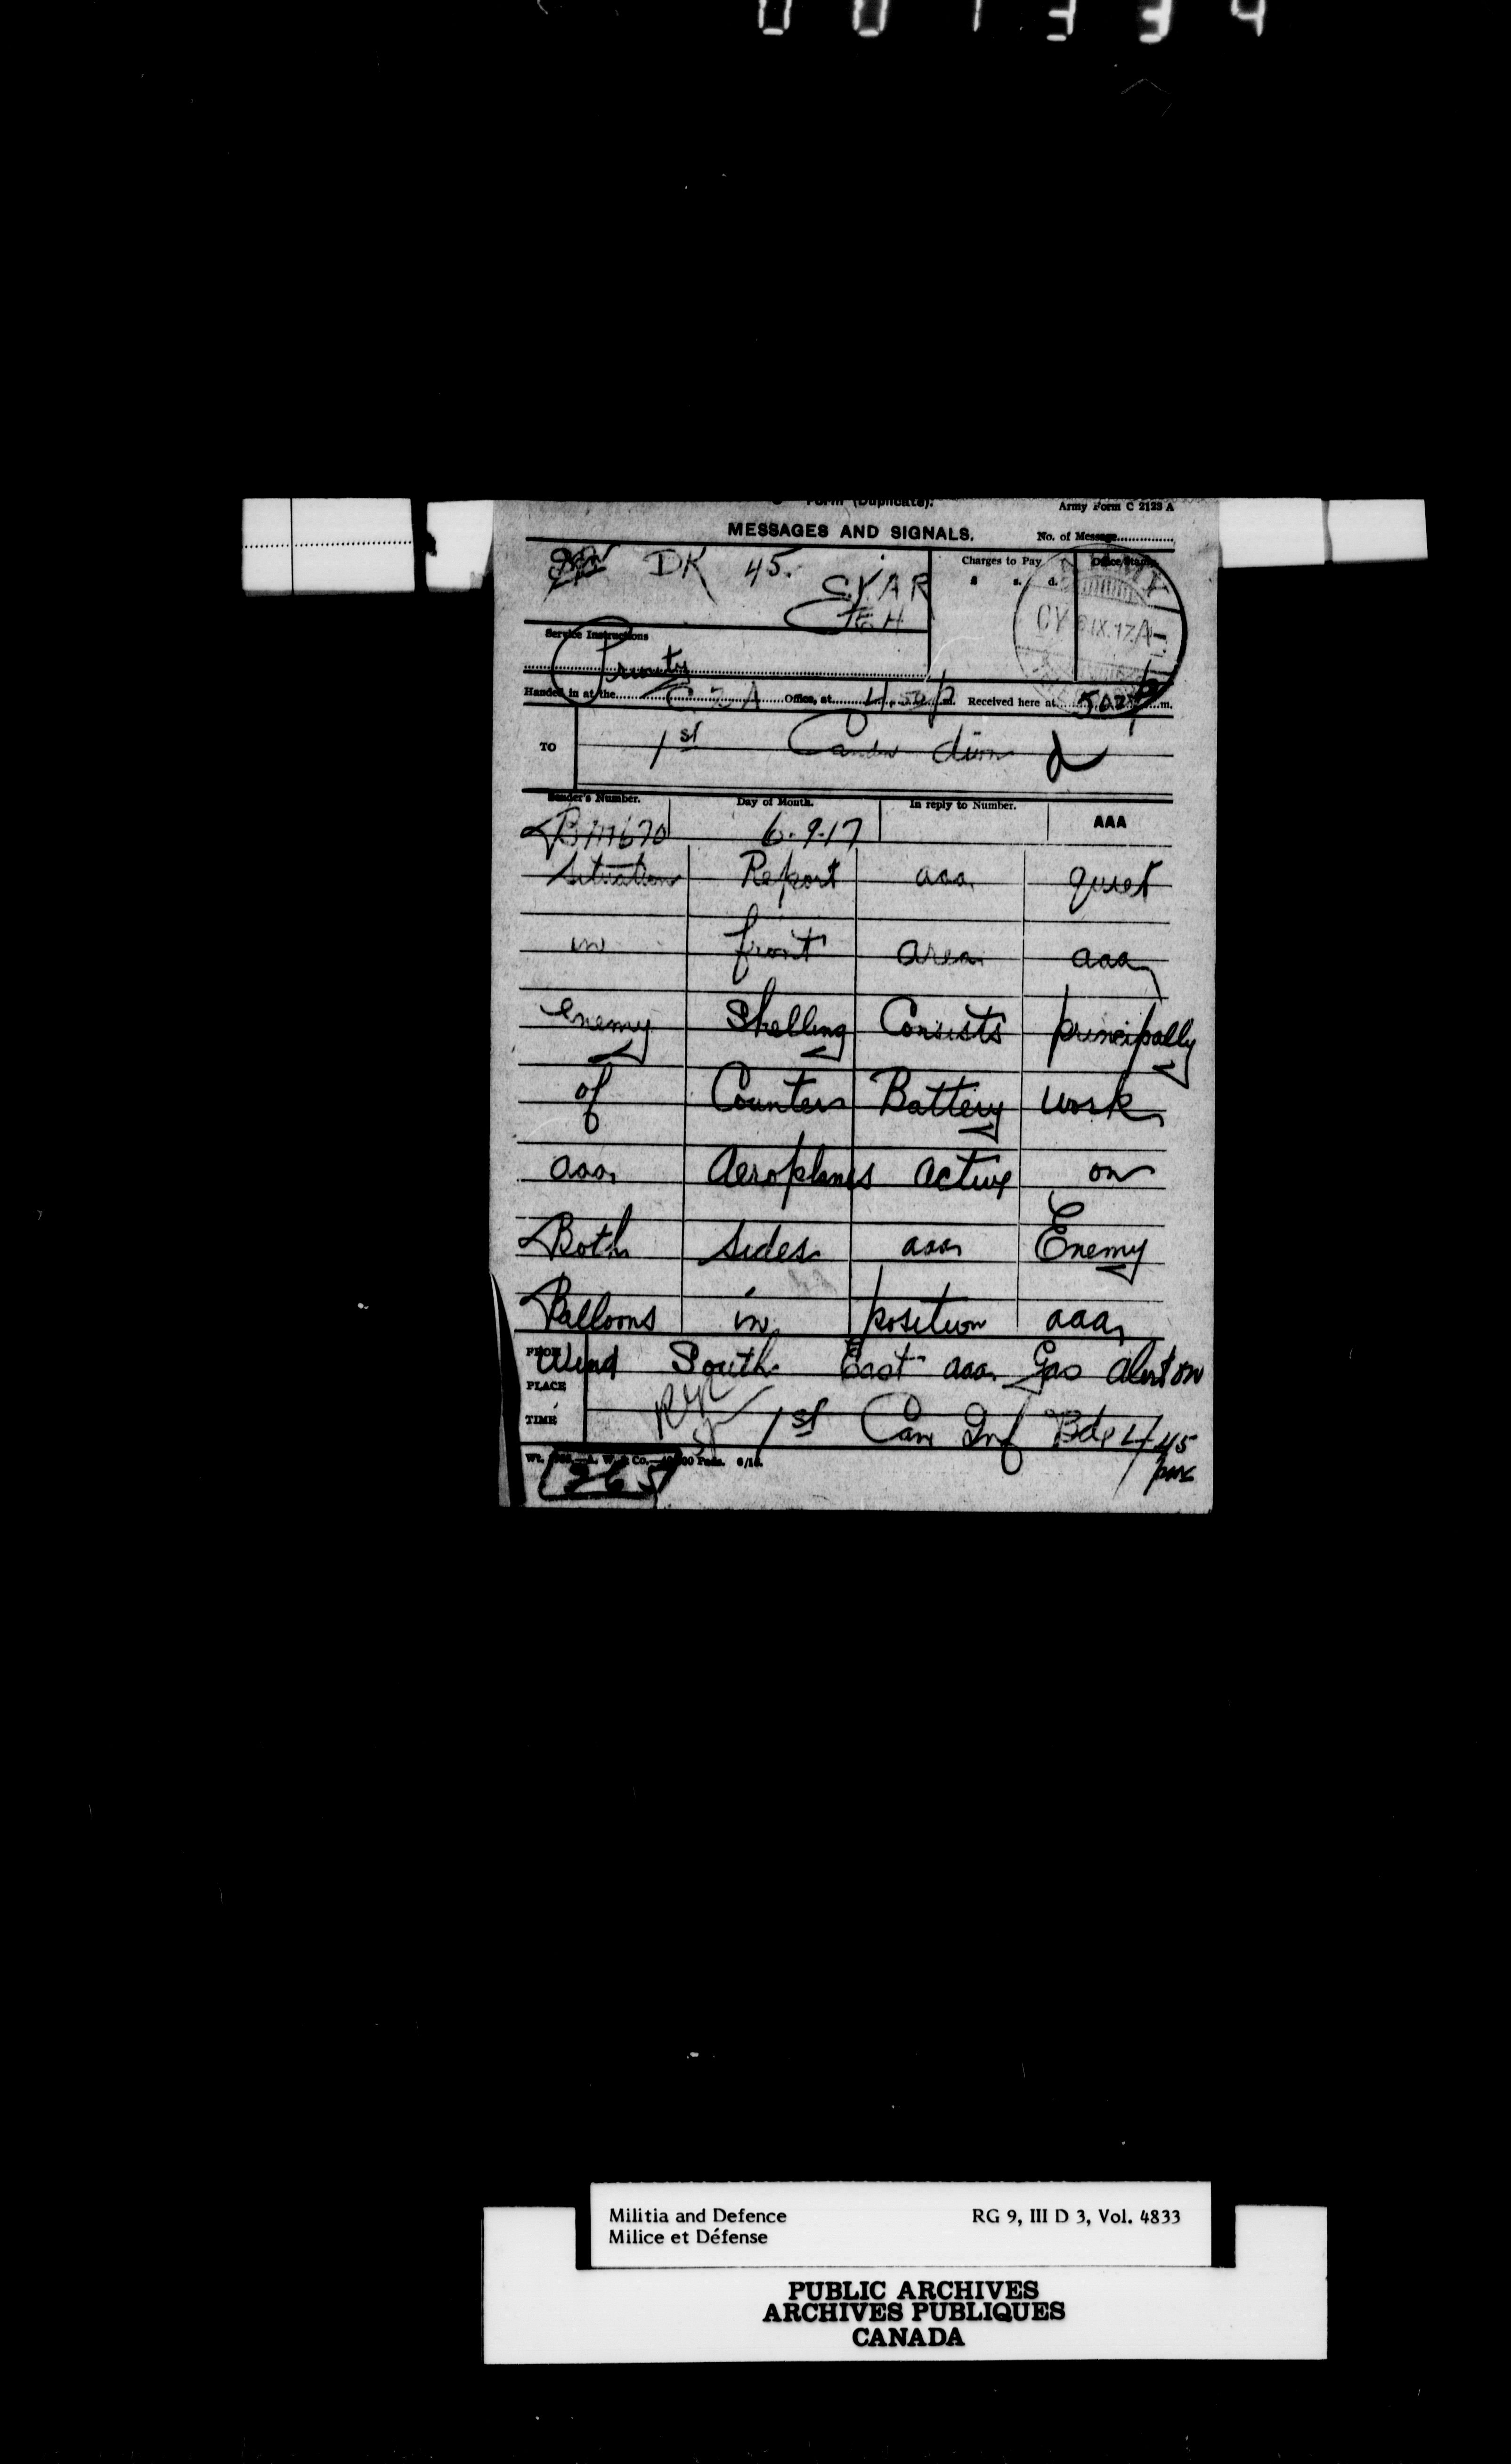 001334
Form (Duplicate).
Army Form C 2123 A
MESSAGES AND SIGNALS.
No. of Message
DK 45.
Charges to Pay
Office Stamp
£ s. d.
CY 6.IX.17
Service Instructions
Priority
Handed in at the Office, at 4.50 p m. Received here at 5.02 p m.
TO
1st Candn divn
Sender's Number.
Day of Month.
In reply to Number.
AAA
BM670
6.9.17
Situation Report aaa quiet
in front area aaa
enemy Shelling Consists principally
of Counter Battery work
aaa Aeroplanes active on
Both sides aaa Enemy
Balloons in position aaa
FROM
Wind South East aaa Gas alert on
PLACE
TIME
1st Can Inf Bde 4 45
pm
Militia and Defence
RG 9, III D 3, Vol. 4833
Milice et Défense
PUBLIC ARCHIVES
ARCHIVES PUBLIQUES
CANADA